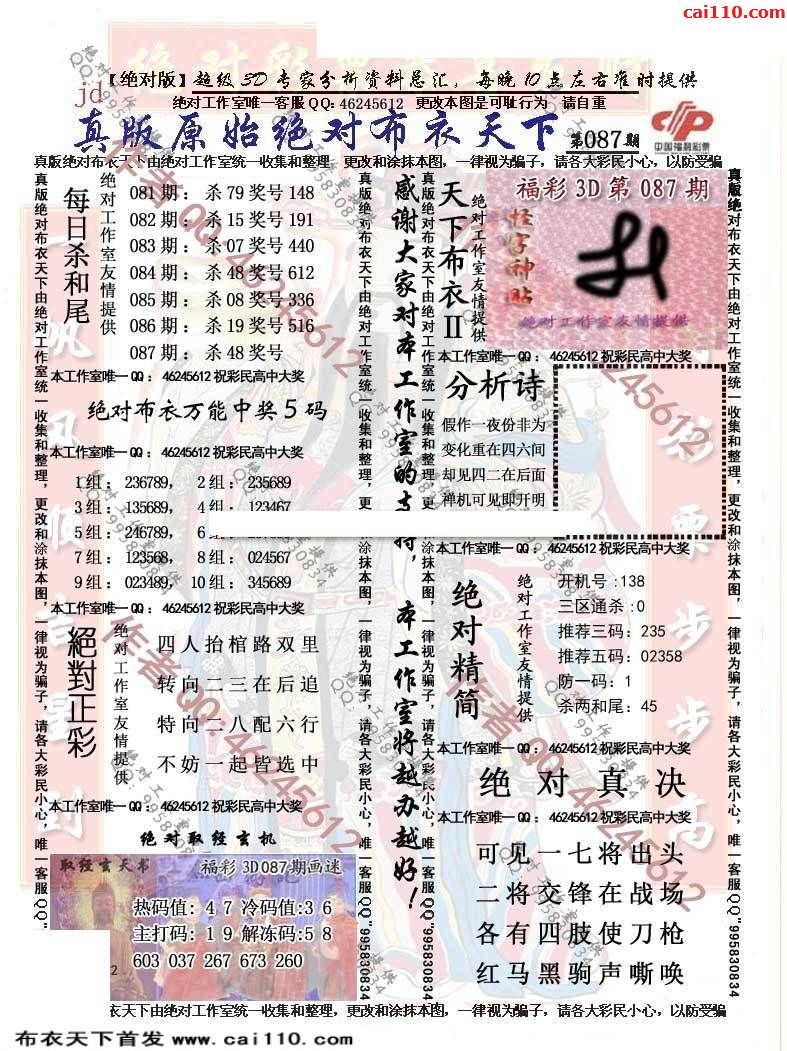 cai110.com
【绝对版】超级3D专家分析资料总汇，每晚10点左右准时提供
jd
绝对工作室唯一客服QQ：46245612 更改本图是可耻行为 请自重
真版原始绝对布衣天下 第087期
中国福利彩票
真版绝对布衣天下由绝对工作室统一收集和整理，更改和涂抹本图，一律视为骗子，请各大彩民小心，以防受骗
真版绝对布衣天下由绝对工作室统一收集和整理，更改和涂抹本图，一律视为骗子，请各大彩民小心，唯一客服QQ"995830834
每日杀和尾
绝对工作室友情提供
081期：杀79奖号148
082期：杀15奖号191
083期：杀07奖号440
084期：杀48奖号612
085期：杀08奖号336
086期：杀19奖号516
087期：杀48奖号
本工作室唯一QQ：46245612祝彩民高中大奖
绝对布衣万能中奖5码
本工作室唯一QQ：46245612祝彩民高中大奖
1组：236789，2组：235689
3组：135689，4组：123467
5组：246789，6
7组：123568，8组：024567
9组：023489，10组：345689
本工作室唯一QQ：46245612祝彩民高中大奖
絕對正彩
绝对工作室友情提供
四人抬棺路双里
转向二三在后追
特向二八配六行
不妨一起皆选中
本工作室唯一QQ：46245612祝彩民高中大奖
绝对取经玄机
取经玄天书
福彩3D087期画迷
热码值：47冷码值:36
主打码：19解冻码:58
603 037 267 673 260
感谢大家对本工作室的支持，本工作室将越办越好！
天下布衣II
绝对工作室友情提供
福彩3D第087期
怪字神贴
绝对工作室友情提供
本工作室唯一QQ：46245612祝彩民高中大奖
分析诗
假作一夜份非为
变化重在四六间
却见四二在后面
禅机可见即开明
本工作室唯一QQ：46245612祝彩民高中大奖
绝对精简
绝对工作室友情提供
开机号:138
三区通杀:0
推荐三码:235
推荐五码:02358
防一码:1
杀两和尾:45
本工作室唯一QQ：46245612祝彩民高中大奖
绝对真决
本工作室唯一QQ：46245612祝彩民高中大奖
可见一七将出头
二将交锋在战场
各有四肢使刀枪
红马黑驹声嘶唤
衣天下由绝对工作室统一收集和整理，更改和涂抹本图，一律视为骗子，请各大彩民小心，以防受骗
布衣天下首发 www.cai110.com